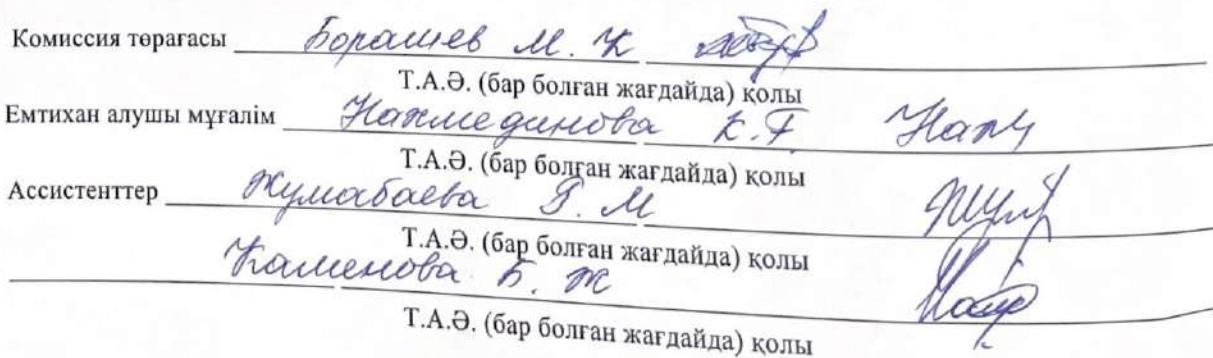 Комиссия төрағасы Борашев М. К
Т.А.Ә. (бар болған жағдайда) қолы
Емтихан алушы мұғалім Нахмединова К.Г.
Т.А.Ә. (бар болған жағдайда) қолы
Ассистенттер Жумабаева Г. М
Т.А.Ә. (бар болған жағдайда) қолы
Каменова Б. Ж
Т.А.Ә. (бар болған жағдайда) қолы